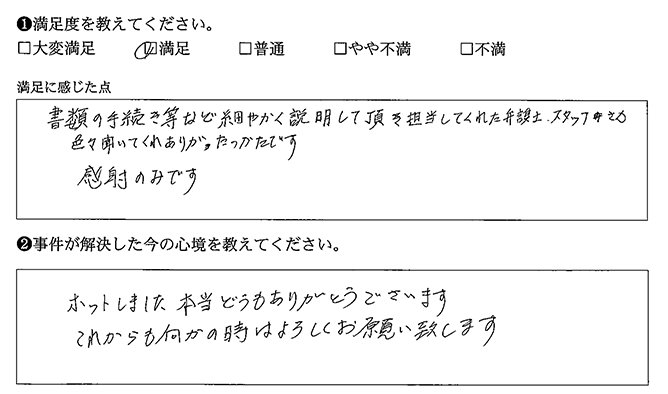 ❶満足度を教えてください。
□大変満足 □満足 □普通 □やや不満 □不満
満足に感じた点
書類の手続き等など細やかく説明して頂き担当してくれた弁護士.スタッフ
色々聞いてくれありがたかったです
感射のみです
❷事件が解決した今の心境を教えてください。
ホットしました 本当どうもありがとうございます
これからも何かの時はよろしくお願い致します